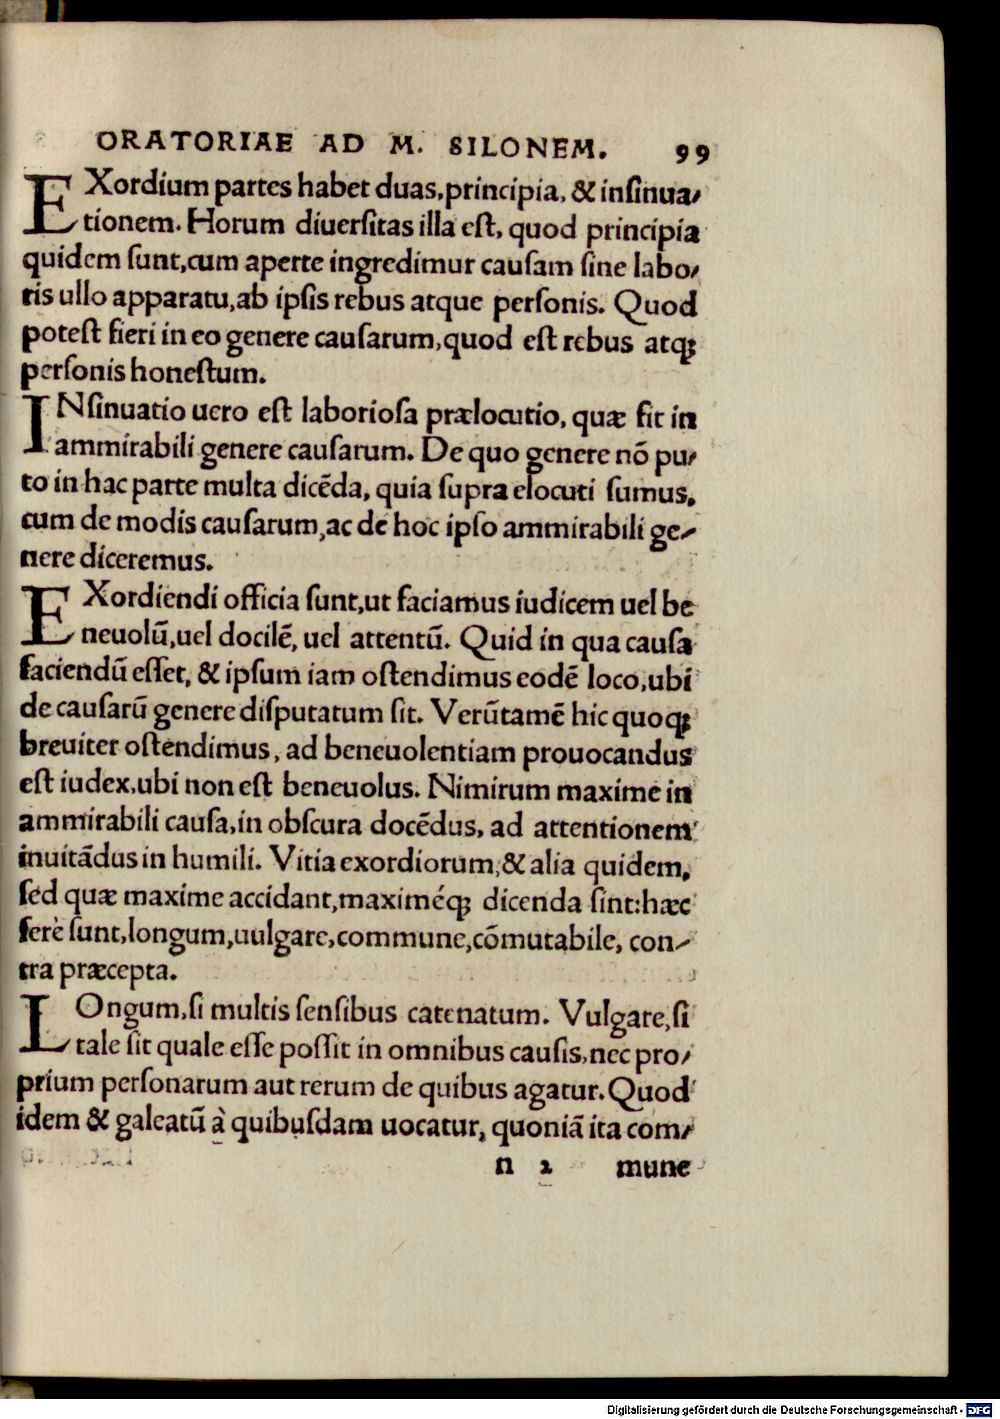 ORATORIAE AD M. SILONEM. 99
EXordium partes habet duas,principia, & inſinua-
tionem. Horum diuerſitas illa eſt, quod principia
quidem ſunt,cum aperte ingredimur cauſam ſine labo-
ris ullo apparatu,ab ipſis rebus atque perſonis. Quod
poteſt fieri in eo genere cauſarum,quod eſt rebus atq;
perſonis honeſtum.
INſinuatio uero eſt laborioſa prælocutio, quæ fit in
ammirabili genere cauſarum. De quo genere nō pu-
to in hac parte multa dicēda, quia ſupra elocuti ſumus,
cum de modis cauſarum,ac de hoc ipſo ammirabili ge-
nere diceremus.
EXordiendi officia ſunt,ut faciamus iudicem uel be
neuolū,uel docilē, uel attentū. Quid in qua cauſa
faciendū eſſet, & ipſum iam oſtendimus eodē loco,ubi
de cauſarū genere diſputatum ſit. Verūtamē hic quoq;
breuiter oſtendimus, ad beneuolentiam prouocandus
eſt iudex,ubi non eſt beneuolus. Nimirum maxime in
ammirabili cauſa,in obſcura docēdus, ad attentionem
inuitādus in humili. Vitia exordiorum,& alia quidem,
ſed quæ maxime accidant,maximéq; dicenda ſint:hæc
ferè ſunt,longum,uulgare,commune,cōmutabile, con-
tra præcepta.
LOngum,ſi multis ſenſibus catenatum. Vulgare,ſi
tale ſit quale eſſe poſſit in omnibus cauſis,nec pro-
prium perſonarum aut rerum de quibus agatur. Quod
idem & galeatū à quibuſdam uocatur, quoniā ita com-
n 2 mune
Digitalisierung gefördert durch die Deutsche Forschungsgemeinschaft - DFG